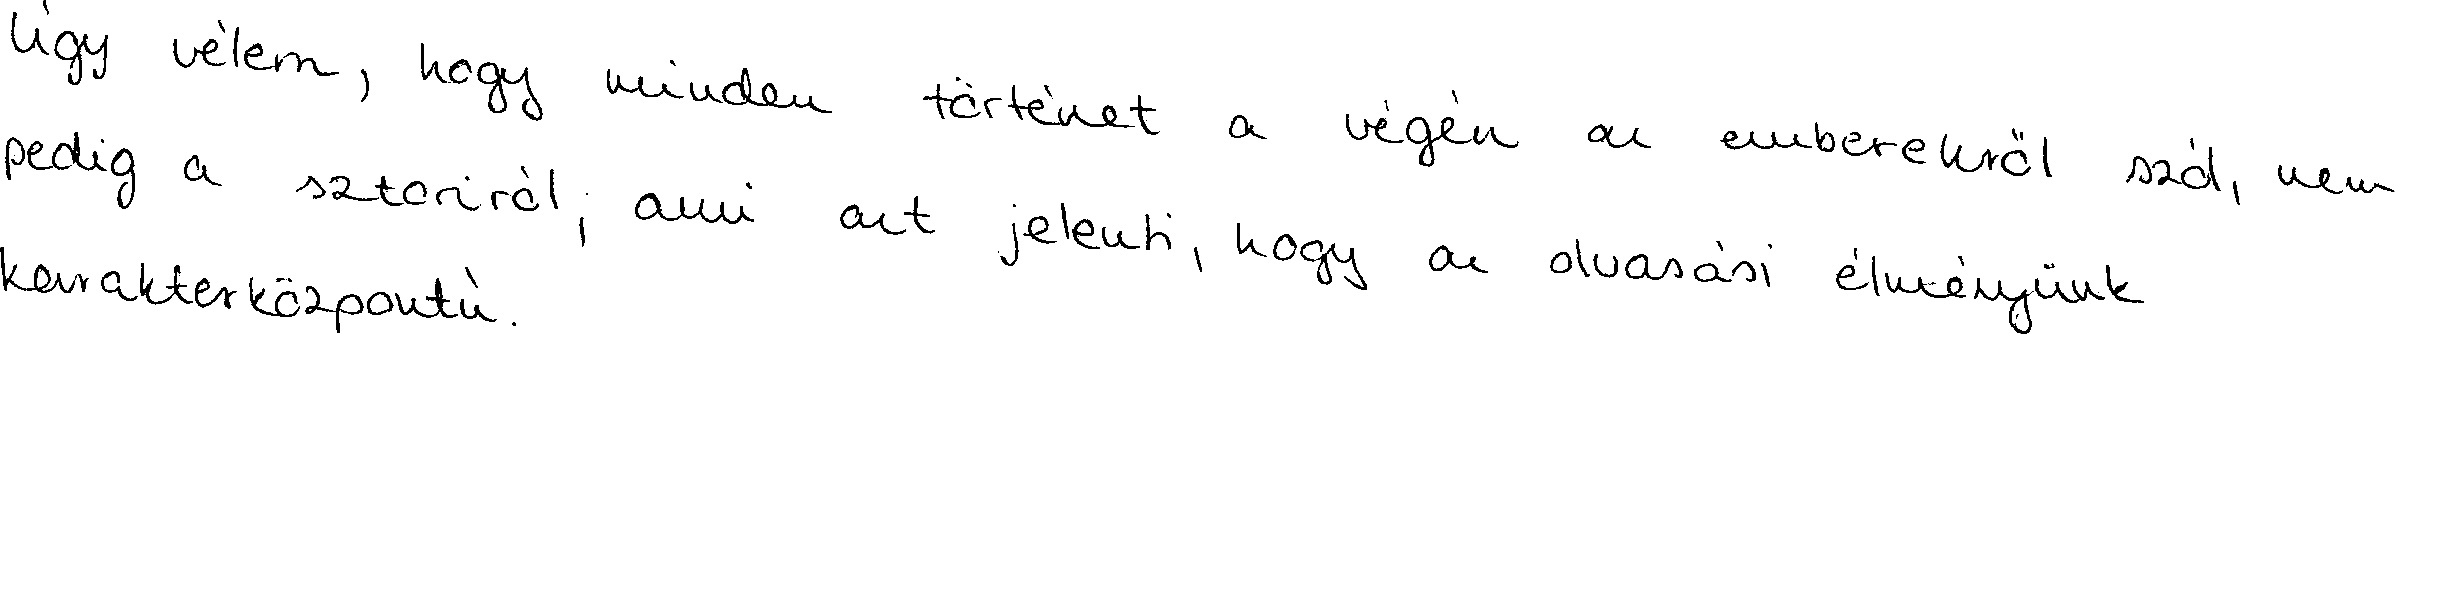 Úgy vélem, hogy minden történet a végén az emberekről szól, nem
pedig a sztoriról, ami azt jelenti, hogy az olvasási élményünk
karakterközpontú.